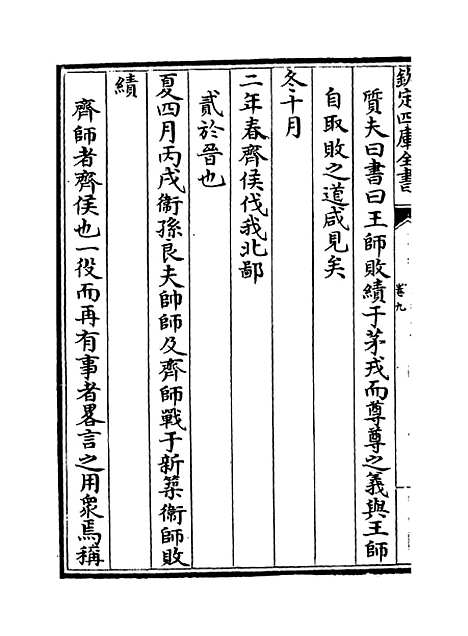 欽定四庫全書
卷九
質夫曰書曰王師敗績于茅戎而尊尊之義與王師
自取敗之道咸見矣
冬十月
二年春齊侯伐我北鄙
貳於晉也
夏四月丙戌衞孫良夫帥師及齊師戰于新築衞師敗
績
齊師者齊侯也一役而再有事者畧言之用衆焉稱